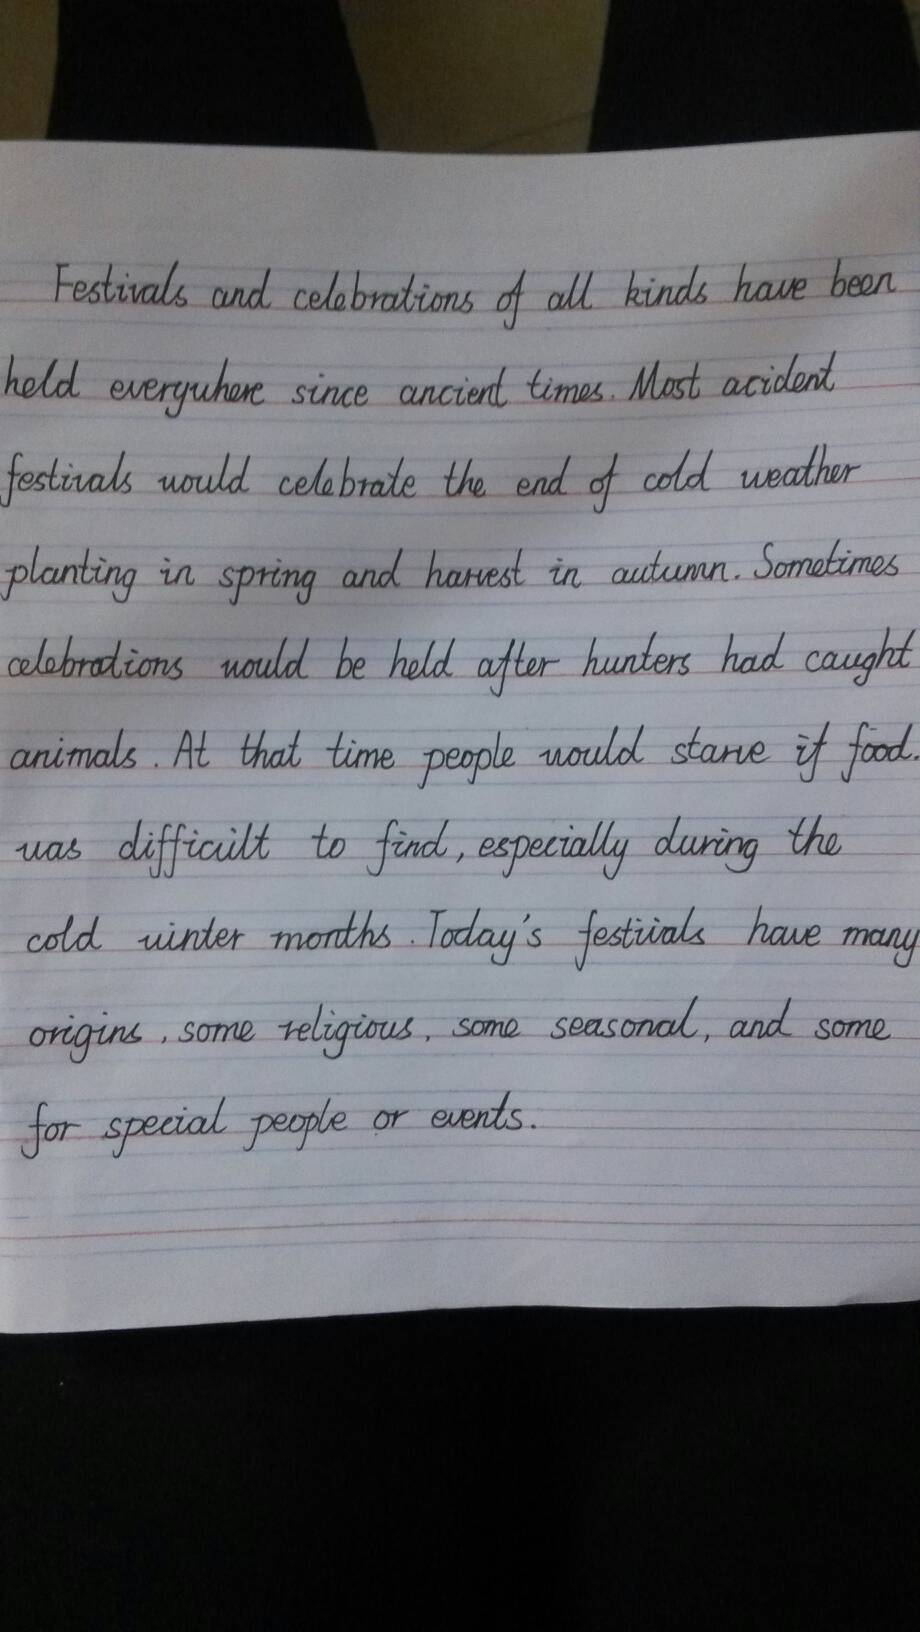 Festivals and celebrations of all kinds have been
held everywhere since ancient times. Most acident
festivals would celebrate the end of cold weather
planting in spring and harvest in autumn. Sometimes
celebrations would be held after hunters had caught
animals. At that time people would starve if food.
was difficult to find, especially during the
cold winter months. Today's festivals have many
origins, some religious, some seasonal, and some
for special people or events.